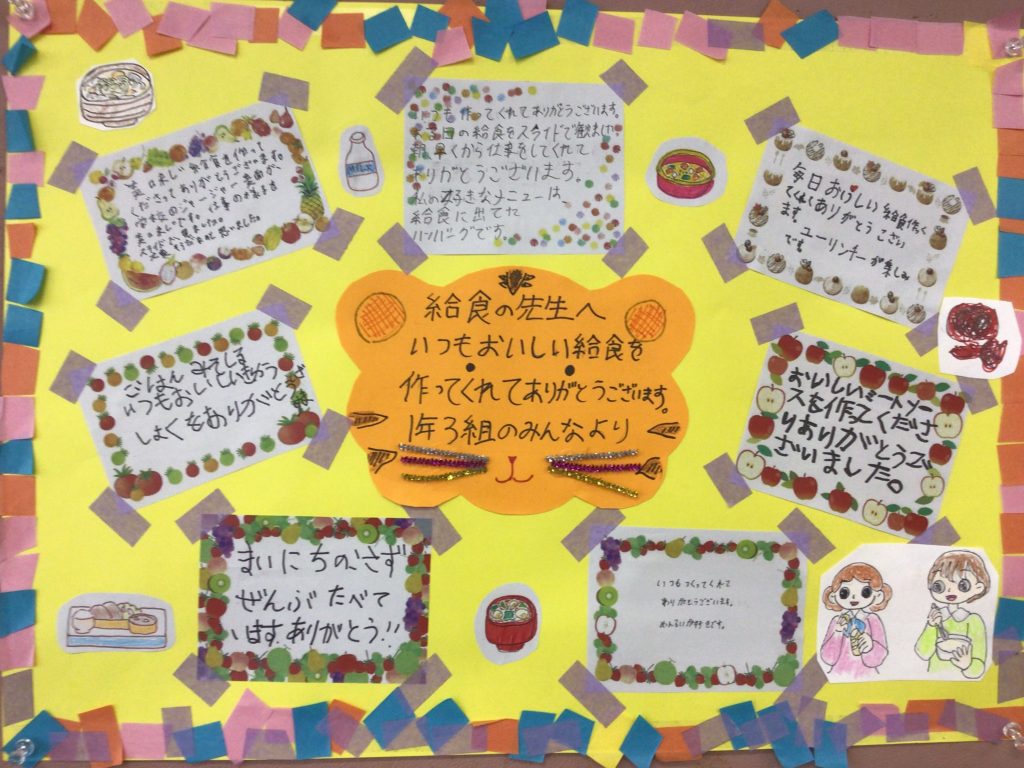 いつも作ってくれてありがとうございます。
日の給食をスライドで観ました
早くから仕事をしてくれて
ありがとうございます。
私の好きなメニューは、
給食に出てた
ハンバーグです
美味しい給食を作って
くださってありがとうございます。
MILK
毎日おいしい給食作って
くれてありがとうござい
ます ユーリンチーが楽しみ
です
給食の先生へ
いつもおいしい給食を
作ってくれてありがとうございます。
1年3組のみんなより
ごはん みそしる
いつもおいしい
しょくをありがとう
おいしいミートソー
スを作ってくださ
りありがとうご
ざいました。
まいにちのこさず
ぜんぶたべて
います。ありがとう!!
いつもつくってくれて
ありがとうございます。
めんるいが好きです。